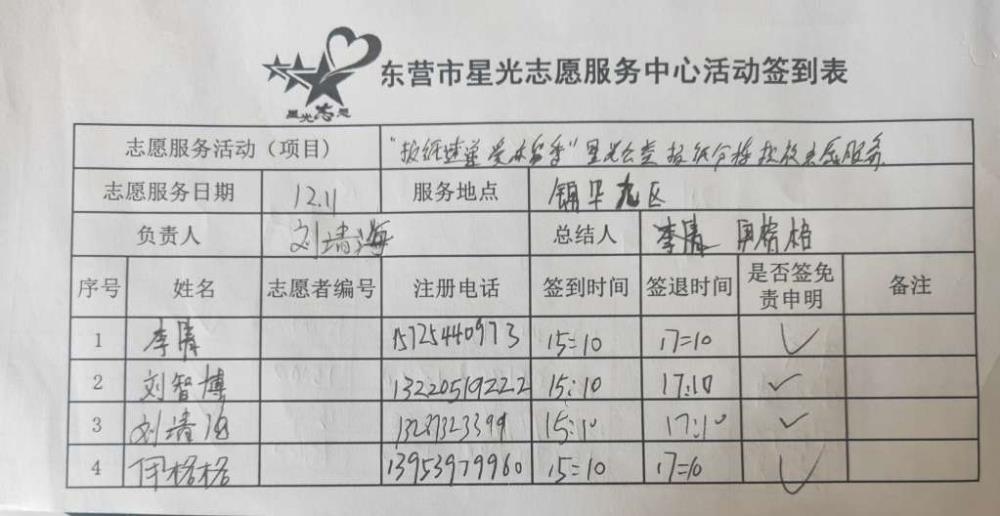 星光志愿
东营市星光志愿服务中心活动签到表
志愿服务活动（项目）
志愿服务日期 12.11 服务地点 锦华九区
负责人 刘靖海 总结人 李倩
序号 姓名 志愿者编号 注册电话 签到时间 签退时间 是否签免责申明 备注
1 李倩 15725440973 15:10 17:10 ✓
2 刘智博 13220519222 15:10 17:10 ✓
3 刘靖海 15:10 17:10 ✓
4 格格 13953979960 15:10 17:10 ✓